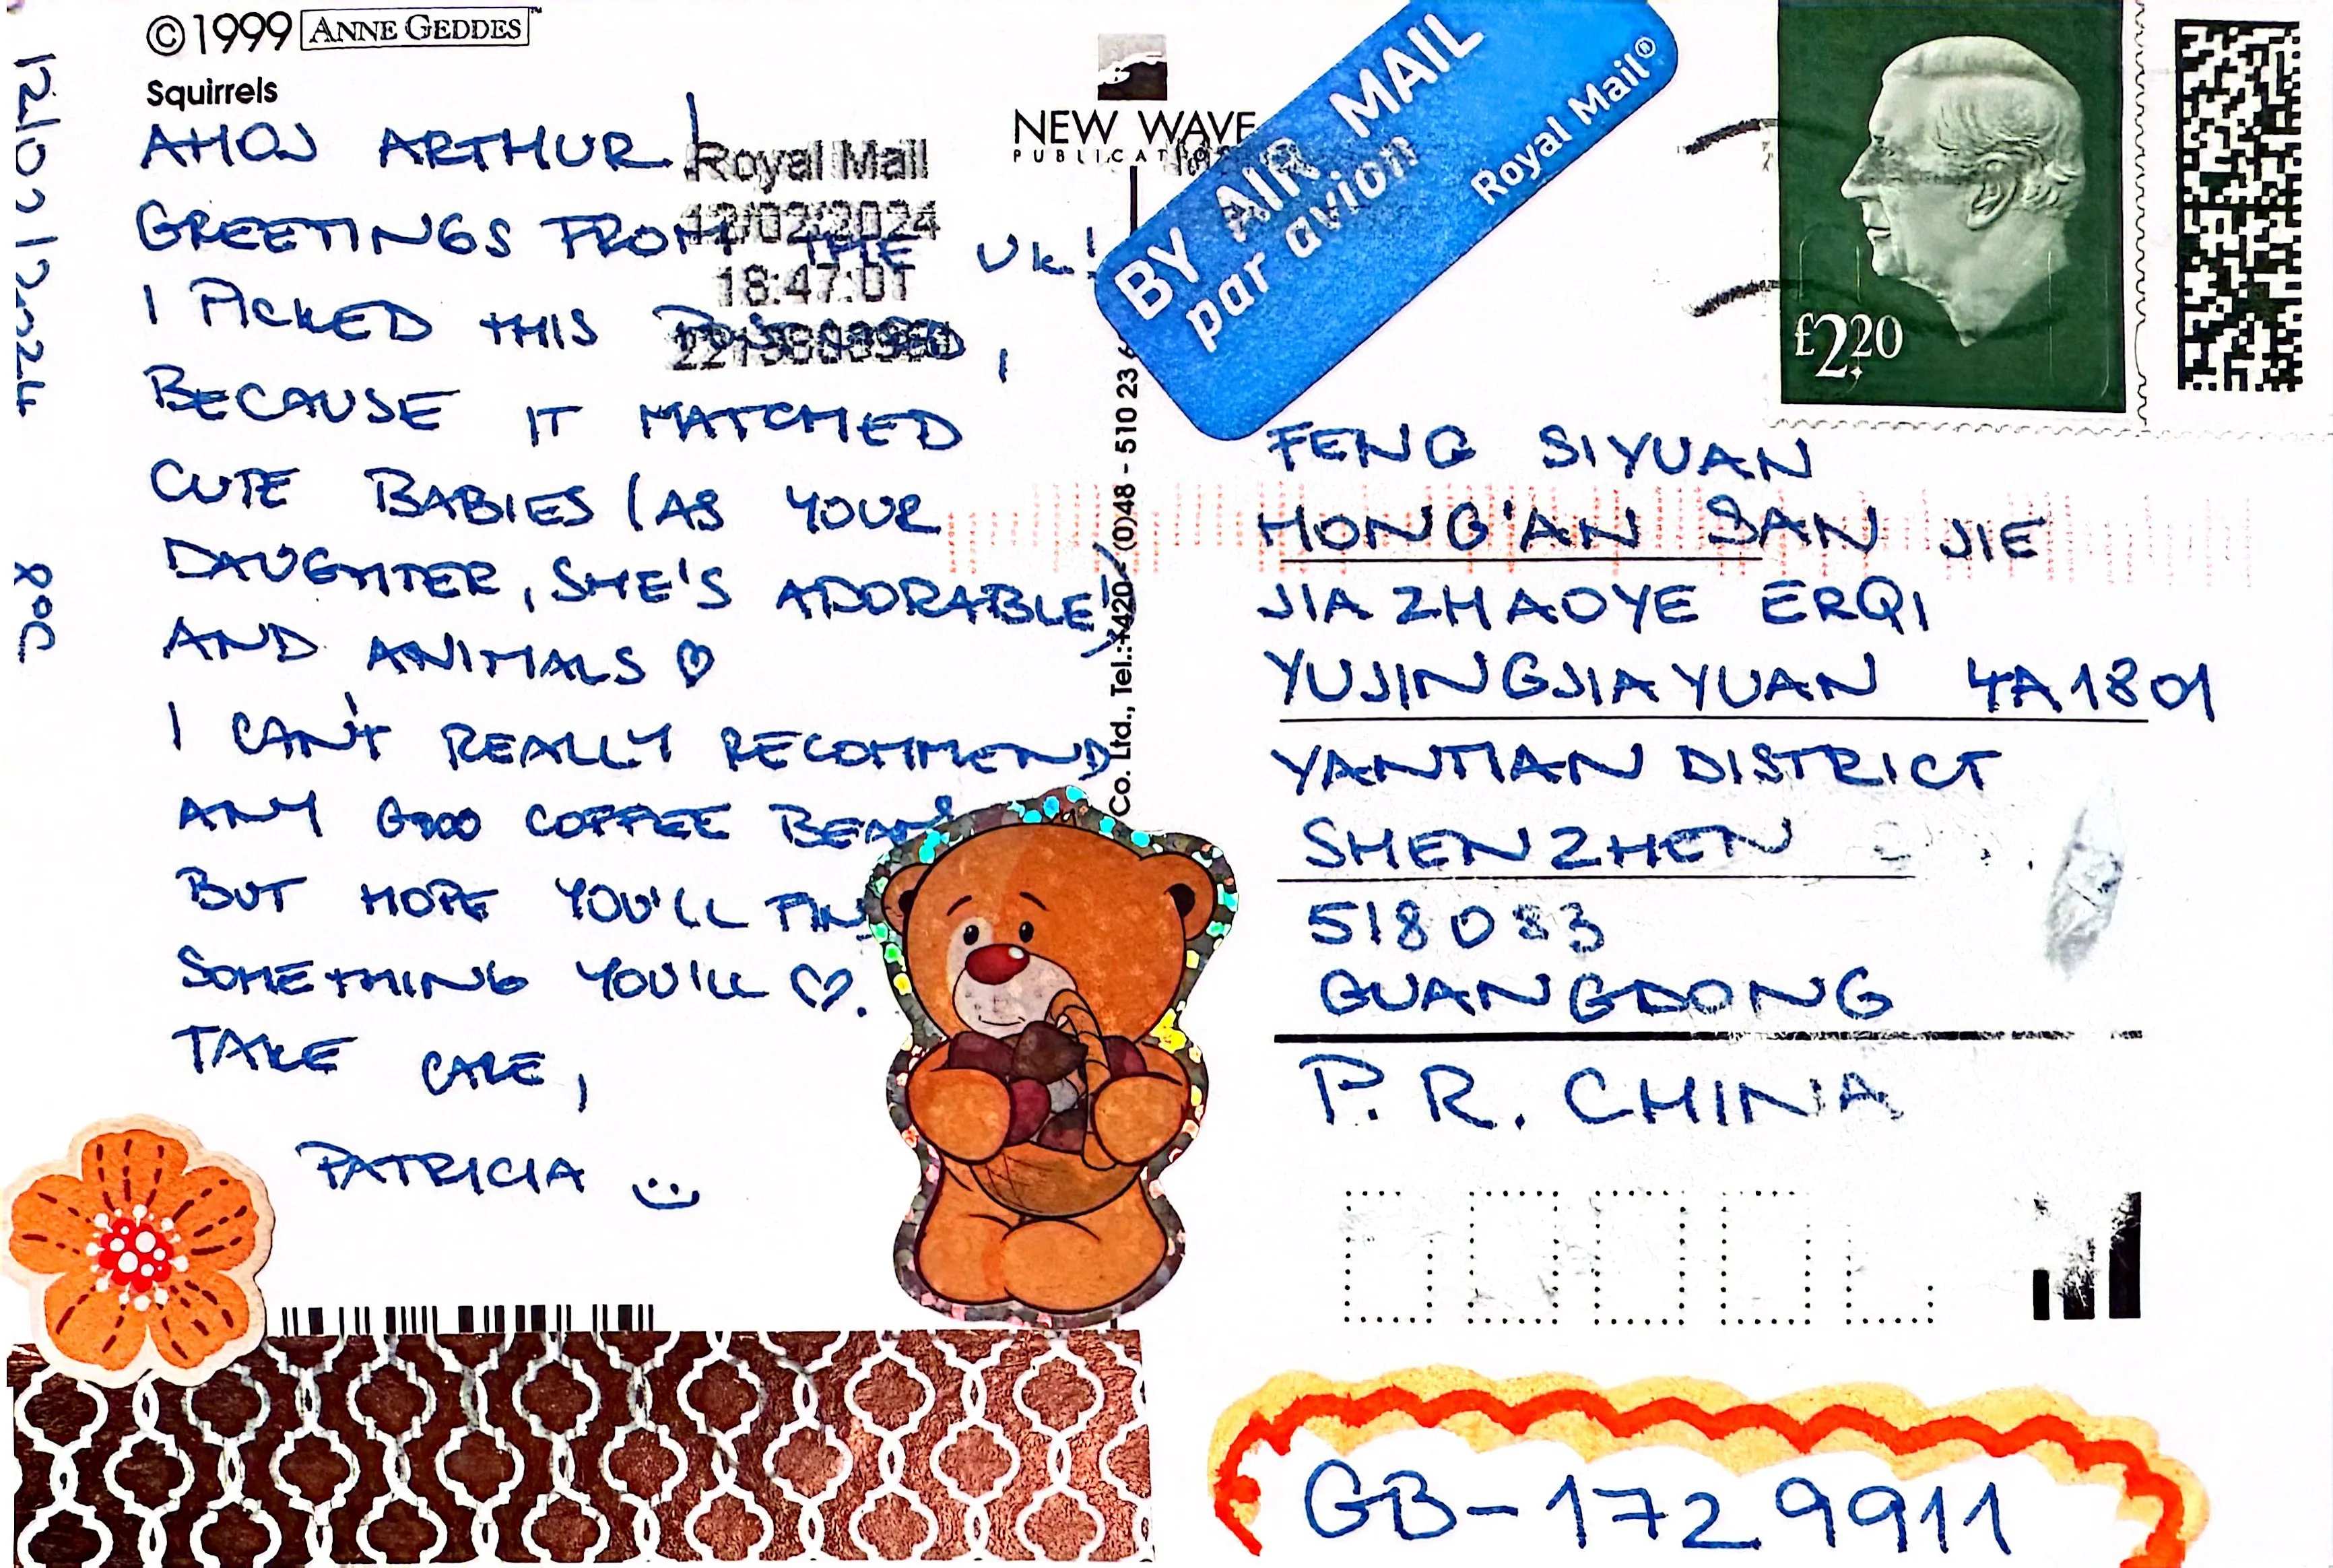 ©1999 ANNE GEDDES™
Squirrels
12/02/2024
8°C
AHOJ ARTHUR!
GREETINGS FROM THE UK!
I PICKED THIS POSTCARD,
BECAUSE IT MATCHED
CUTE BABIES (AS YOUR
DAUGHTER, SHE'S ADORABLE!)
AND ANIMALS ♡
I CAN'T REALLY RECOMMEND
ANY GOOD COFFEE BEANS
BUT HOPE YOU'LL FIND
SOMETHING YOU'LL ♡.
TAKE CARE,
PATRICIA
Royal Mail
18:47:01
NEW WAVE
PUBLICAT
Co. Ltd., Tel.: +420 - (0)48 - 510 23 6
BY AIR MAIL
par avion
Royal Mail®
£2.20
FENG SIYUAN
HONG'AN SAN JIE
JIAZHAOYE ERQI
YUJINGJIAYUAN 4A1801
YANTIAN DISTRICT
SHENZHEN
518083
GUANGDONG
P.R. CHINA
GB-1729911